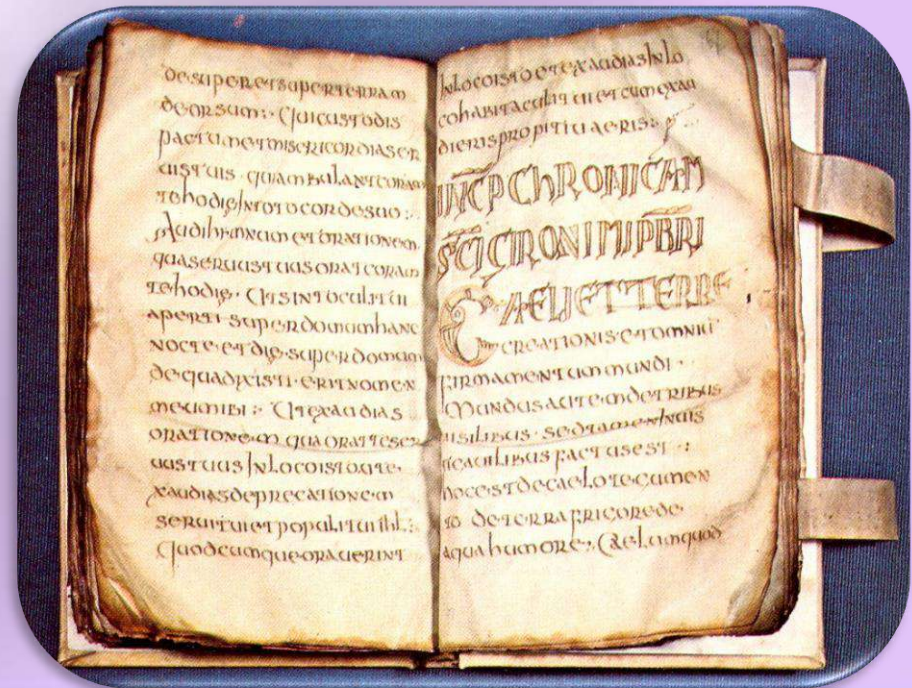 desuperetsuperterram
deorsum:· Quicustodis
pactumetmisericordiaser
uistuis· quiambulantcoram
tehodieintotocordesuo:·
Audihimnumetorationem
quaseruustuusoratcoram
tehodie· Utsintoculitui
aperti·superdomumhanc
nocte·etdie·superdomum
dequadixisti·eritnomen
meumibi:· Utexaudias
orationemquaoratteser
uustuusinlocoistoute
xaudiasdeprecationem
seruituietpopulituihl:·
Quodcumqueorauerint
inlocoistoetexaudiasinlo
cohabitaculituietcumexau
dierispropitiuaeris:·
INCP CHRONICAM
SCI CIRONIMI PBRI
CAELI ET TERRE
creationisetomniu
firmamentummundi·
Mundusautemdetribus
uisilibus·sedtameninuis
factusest·:
hocestdecaelotecumen
to deterrafrigorede
aquahumore:· Caelumquod